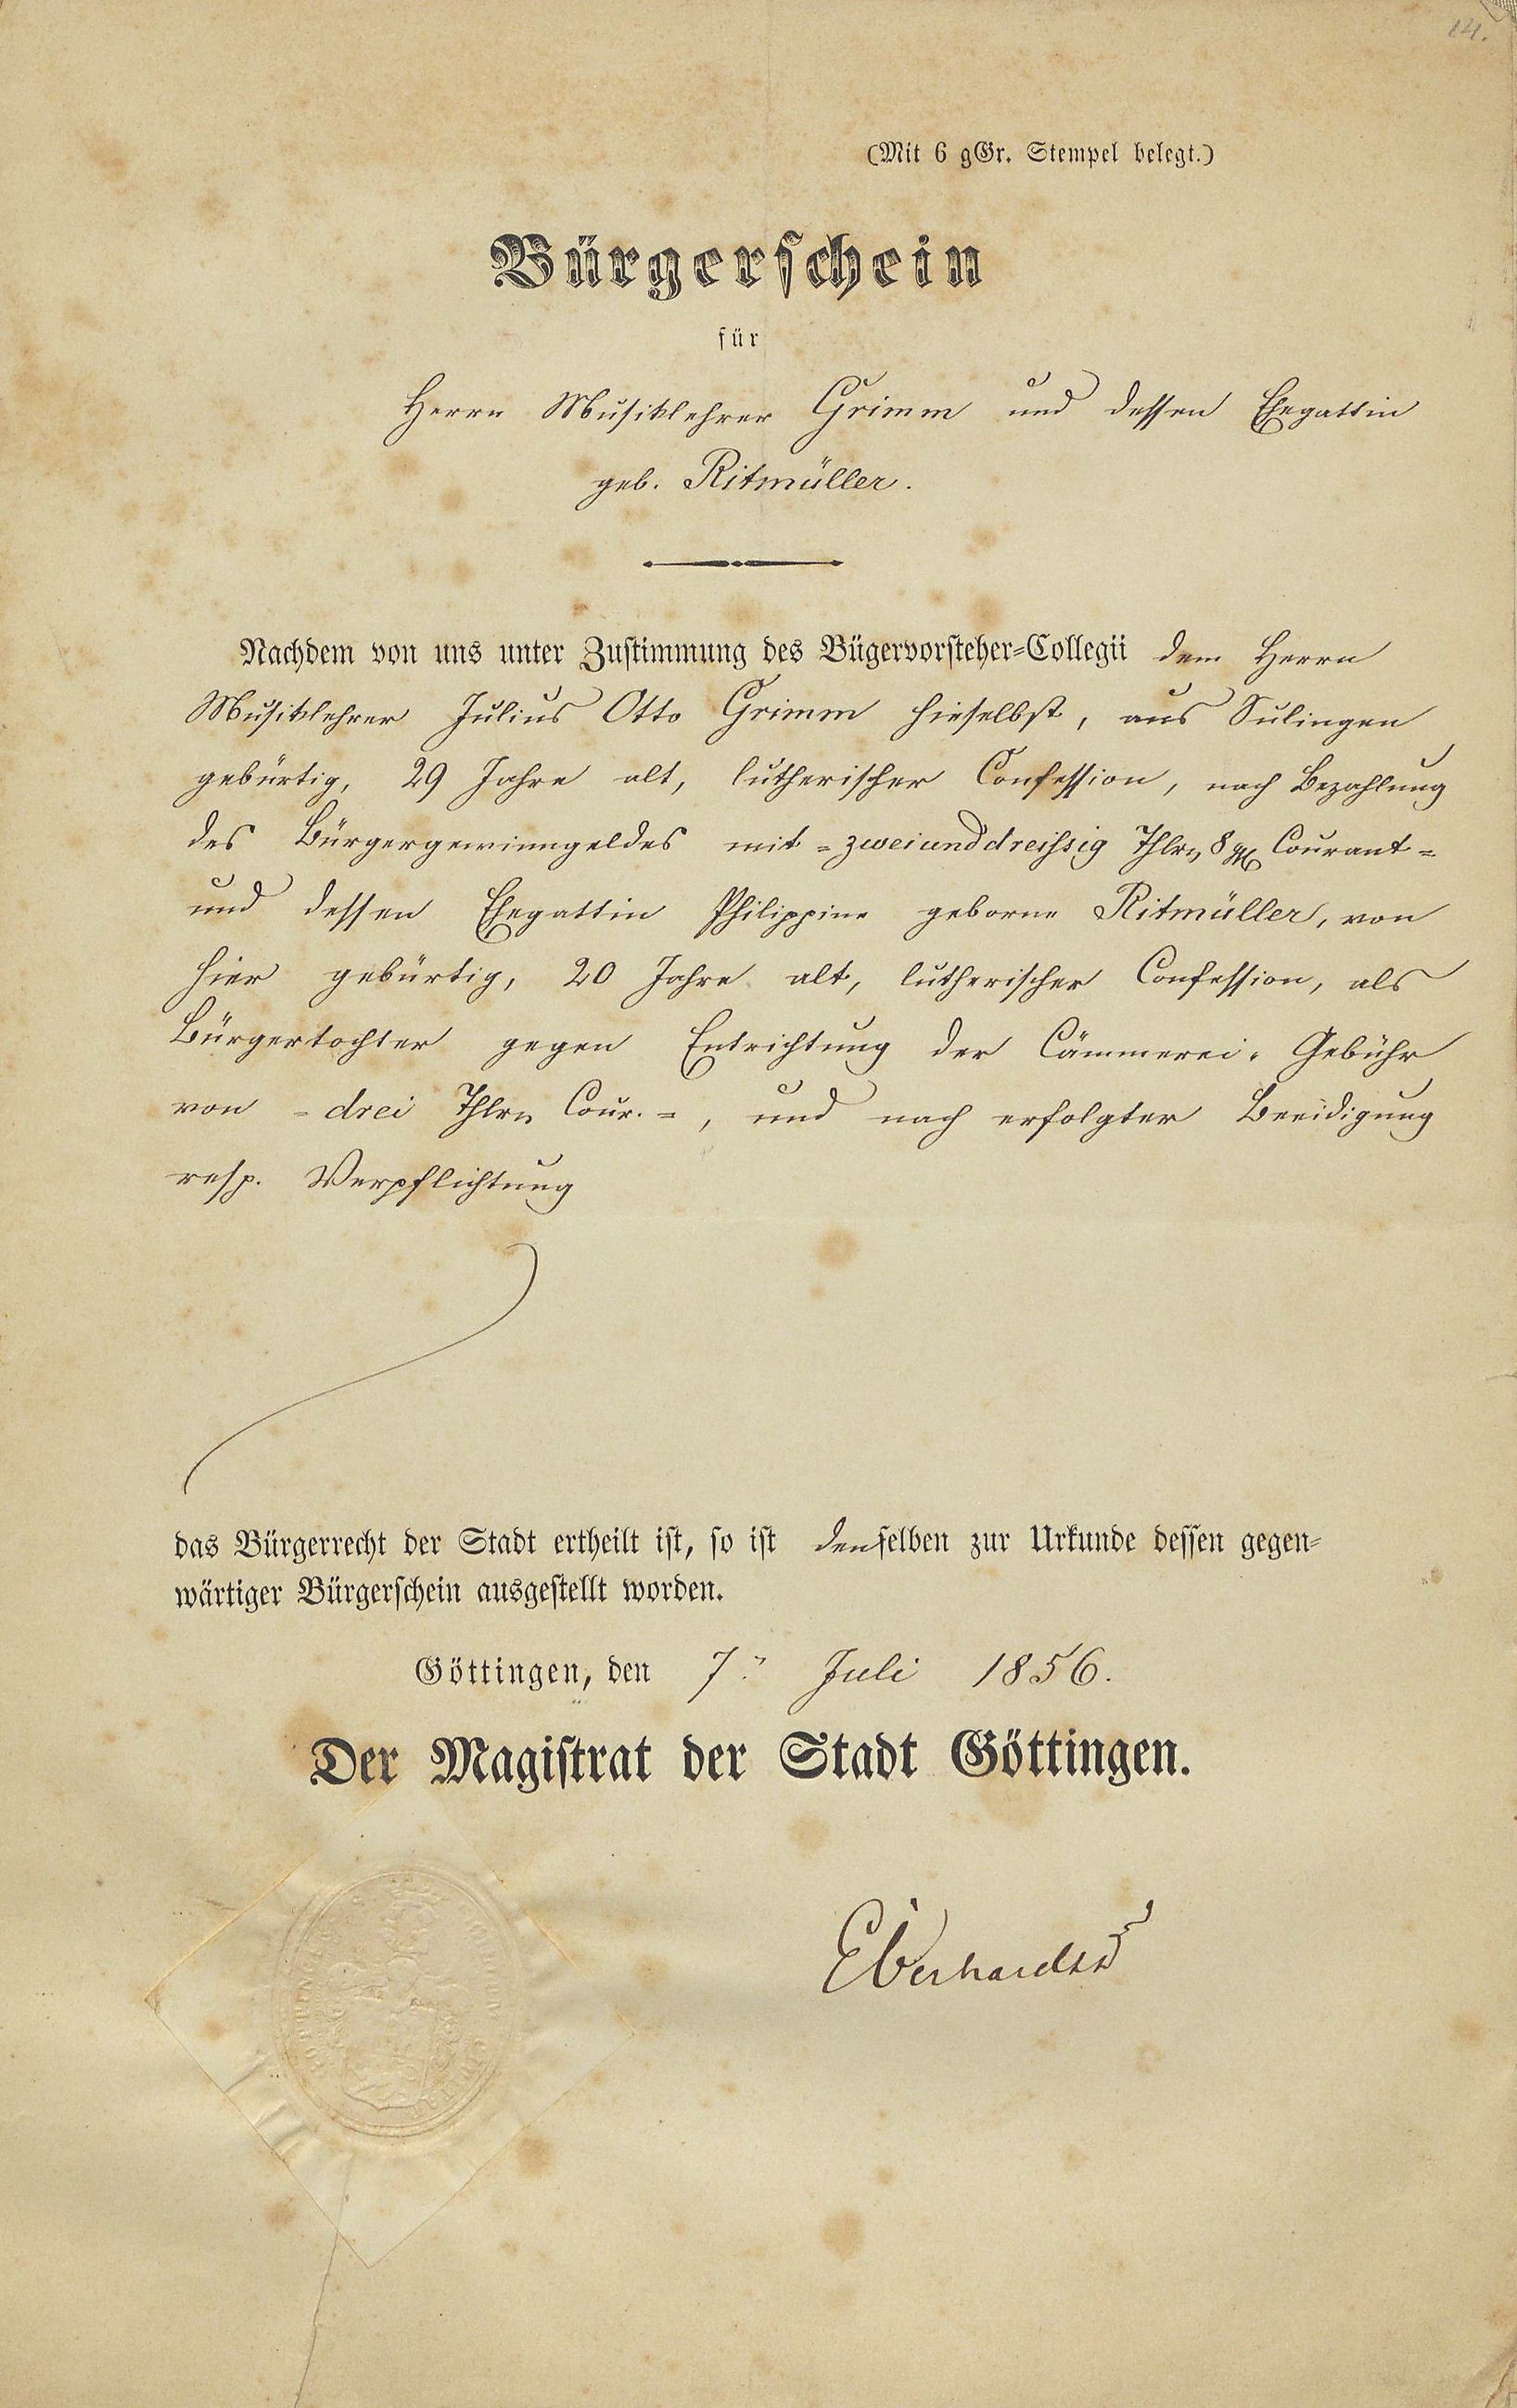 14.
(Mit 6 gGr. Stempel belegt.)
Bürgerschein
für
Herrn Musiklehrer Grimm und dessen Ehegattin
geb. Ritmüller.
Nachdem von uns unter Zustimmung des Bügervorsteher-Collegii dem Herrn
Musiklehrer Julius Otto Grimm hieselbst, aus Sulingen
gebürtig, 29 Jahre alt, lutherischer Confession, nach Bezahlung
des Bürgergewinngeldes mit = zweiunddreissig Thlrn 8 Courant =
und dessen Ehegattin Philippine geborne Ritmüller, von
hier gebürtig, 20 Jahre alt, lutherischer Confession, als
Bürgertochter gegen Entrichtung der Cämmerei-Gebühr
von = drei Thlrn Cour. =, und nach erfolgter Beeidigung
resp. Verpflichtung
das Bürgerrecht der Stadt ertheilt ist, so ist denselben zur Urkunde dessen gegen-
wärtiger Bürgerschein ausgestellt worden.
Göttingen, den 7. Juli 1856.
Der Magistrat der Stadt Göttingen.
Eberhardt